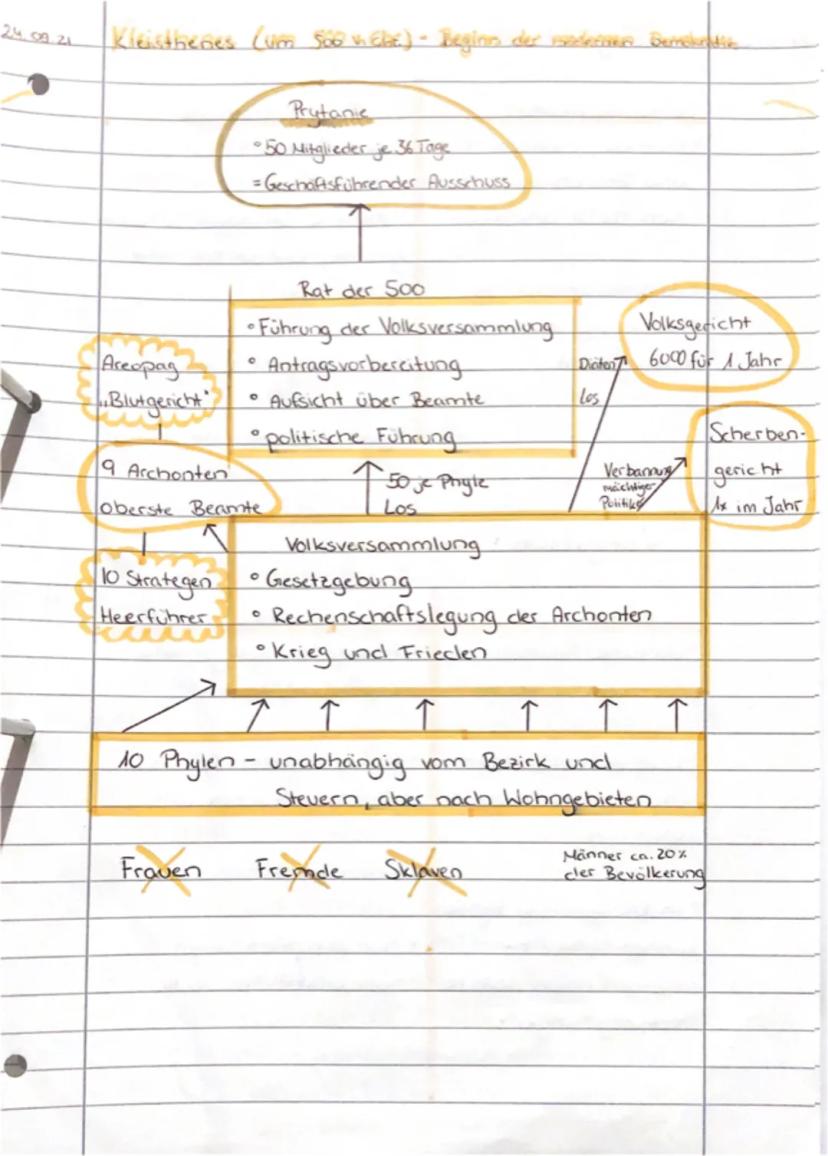 24.09.21
Kleisthenes (um 500 v. Chr.) - Beginn der modernen Demokratie
Prytanie
° 50 Mitglieder je 36 Tage
= Geschäftsführender Ausschuss
Rat der 500
° Führung der Volksversammlung
° Antragsvorbereitung
° Aufsicht über Beamte
° politische Führung
Volksgericht
6000 für 1 Jahr
Diäten
Los
Areopag
"Blutgericht"
Scherben-
gericht
1x im Jahr
Verbannung
mächtiger
Politiker
9 Archonten
oberste Beamte
50 je Phyle
Los
10 Strategen
Heerführer
Volksversammlung
° Gesetzgebung
° Rechenschaftslegung der Archonten
° Krieg und Frieden
10 Phylen - unabhängig vom Bezirk und
Steuern, aber nach Wohngebieten
Frauen Fremde Sklaven
Männer ca. 20%
der Bevölkerung